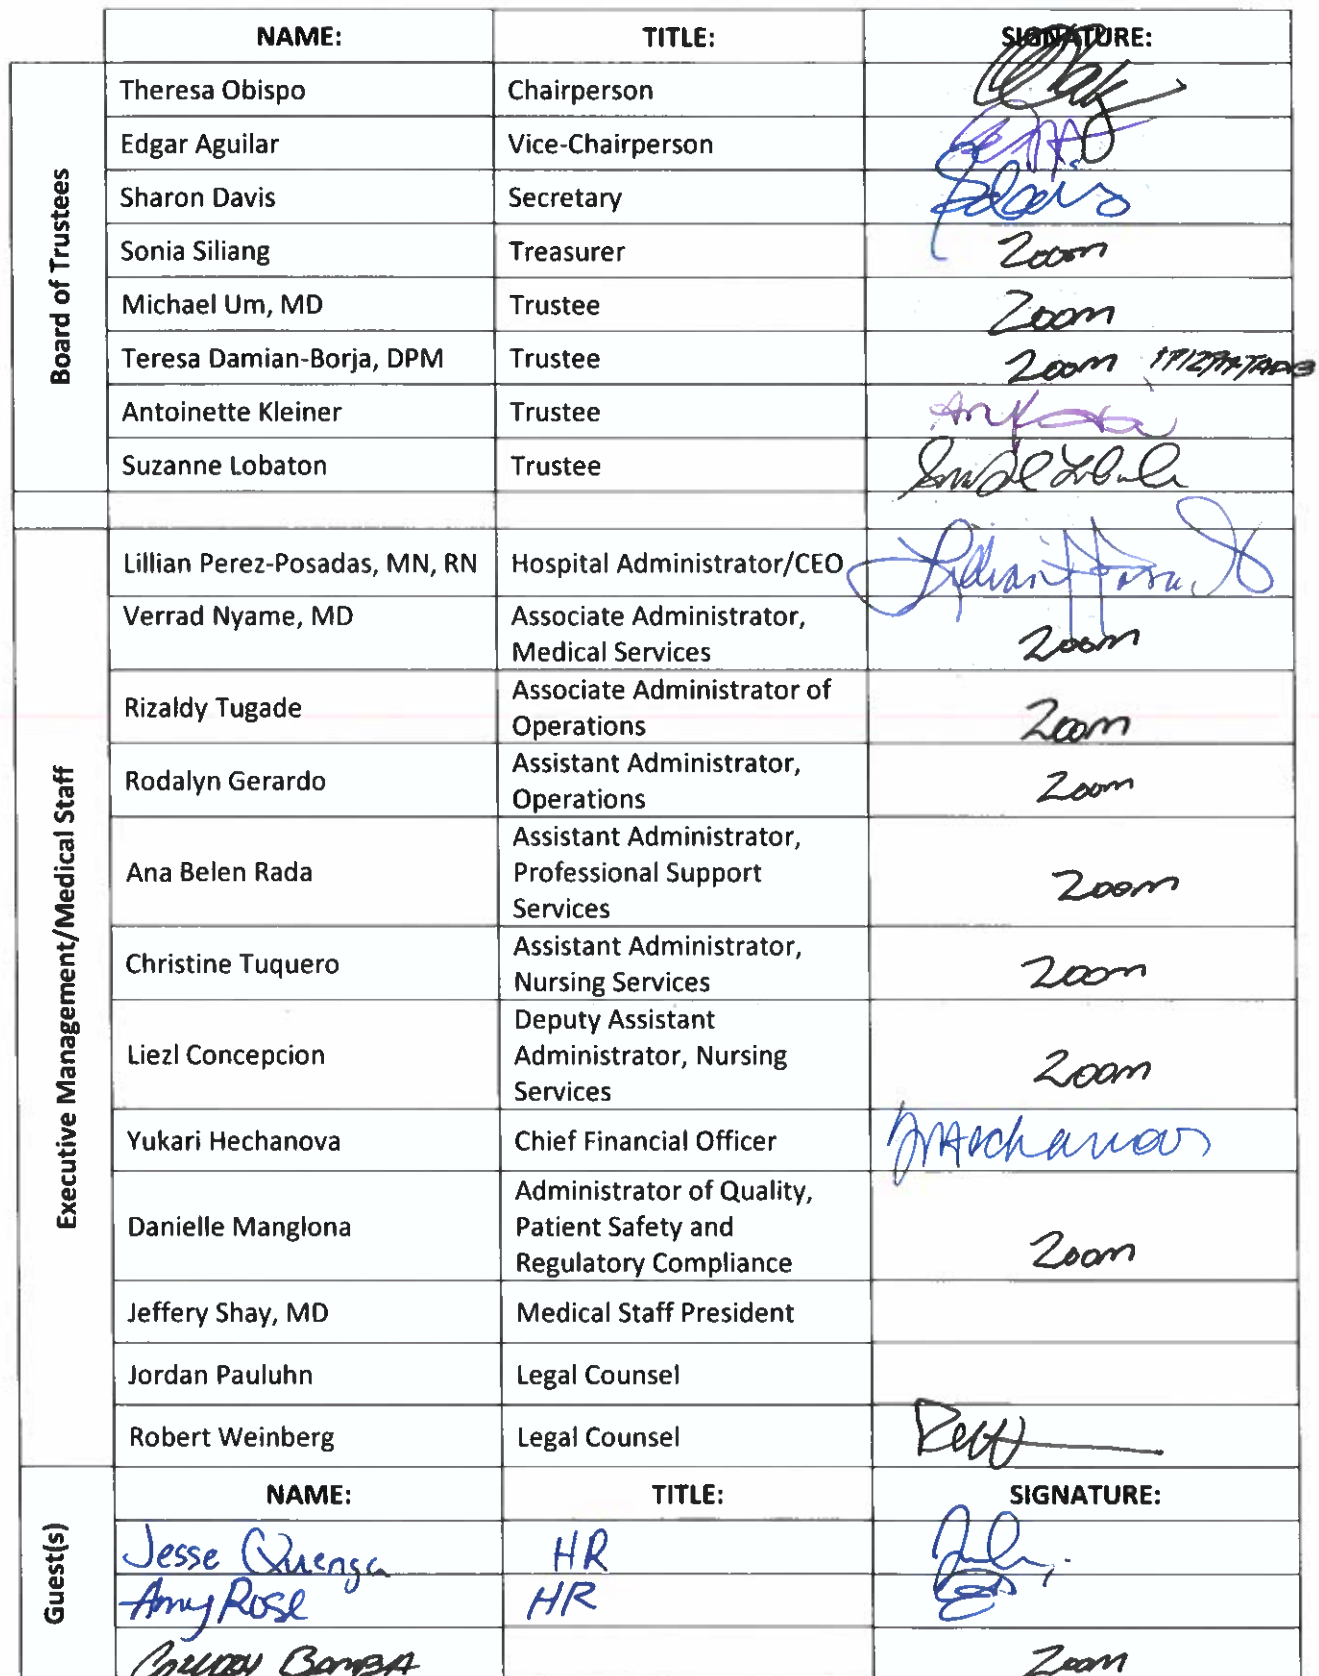 NAME: TITLE: SIGNATURE:
Board of Trustees
Theresa Obispo Chairperson
Edgar Aguilar Vice-Chairperson
Sharon Davis Secretary
Sonia Siliang Treasurer Zoom
Michael Um, MD Trustee Zoom
Teresa Damian-Borja, DPM Trustee Zoom
Antoinette Kleiner Trustee
Suzanne Lobaton Trustee
Executive Management/Medical Staff
Lillian Perez-Posadas, MN, RN Hospital Administrator/CEO
Verrad Nyame, MD Associate Administrator,
Medical Services Zoom
Rizaldy Tugade Associate Administrator of
Operations Zoom
Rodalyn Gerardo Assistant Administrator,
Operations Zoom
Ana Belen Rada Assistant Administrator,
Professional Support
Services Zoom
Christine Tuquero Assistant Administrator,
Nursing Services Zoom
Liezl Concepcion Deputy Assistant
Administrator, Nursing
Services Zoom
Yukari Hechanova Chief Financial Officer
Danielle Manglona Administrator of Quality,
Patient Safety and
Regulatory Compliance Zoom
Jeffery Shay, MD Medical Staff President
Jordan Pauluhn Legal Counsel
Robert Weinberg Legal Counsel
Guest(s)
NAME: TITLE: SIGNATURE:
Jesse Quenga HR
Amy Rose HR
Zoom